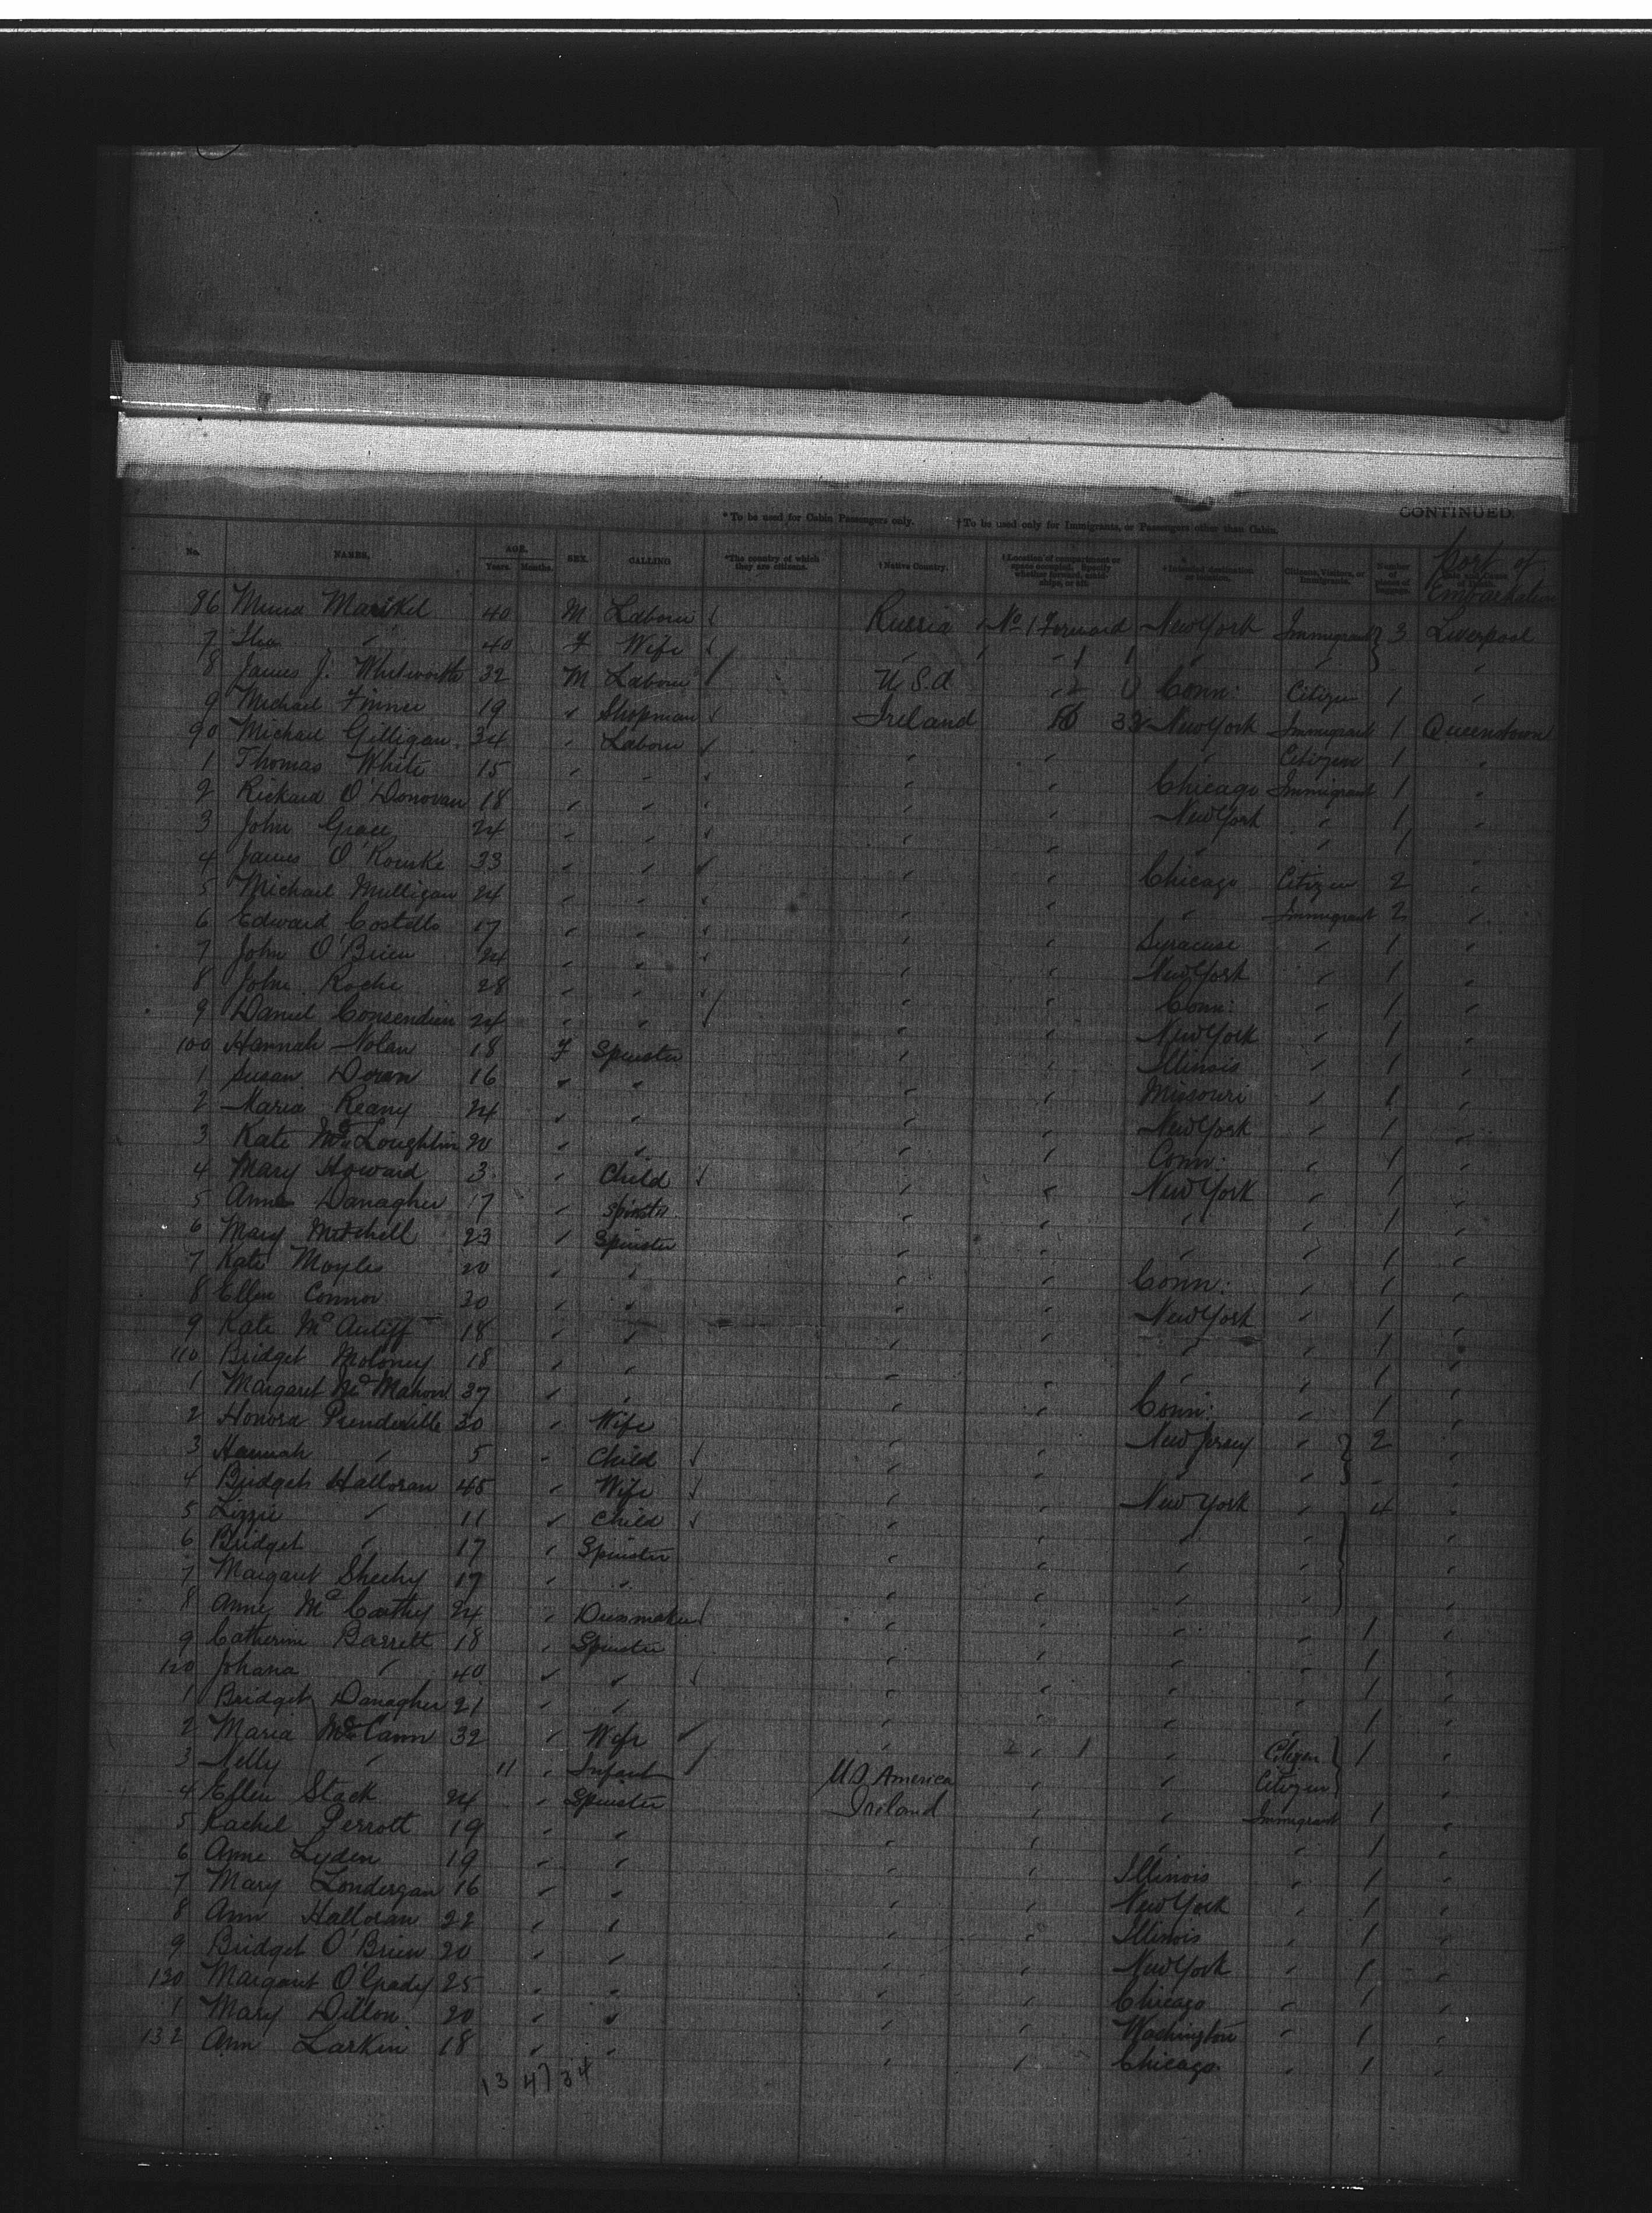 CONTINUED.
* To be used for Cabin Passengers only. † To be used only for Immigrants, or Passengers other than Cabin.
No. NAMES. AGE. Years. Months. SEX. CALLING *The country of which they are citizens. † Native Country. † Location of compartment or space occupied. Citizens, Visitors, or Immigrants. Number of pieces of baggage. Port of Embarkation
86 Markel 40 M Labour Russia No 1 Forward New York Immigrant 3 Liverpool
7 " 40 F Wife " " " "
8 James J. Whitworth 32 M Labour U.S.A Conn: Citizen 1 "
9 Michael Finner 19 " Shopman Ireland New York Immigrant 1 Queenstown
90 Michael Gilligan 34 " Labour " " " Citizen 1 "
1 Thomas White 15 " " " " Chicago Immigrant 1 "
2 Richard O'Donovan 18 " " " " New York " 1 "
3 John Grace 24 " " " " " " 1 "
4 James O'Rourke 33 " " " " Chicago Citizen 2 "
5 Michael Mulligan 24 " " " " " Immigrant 2 "
6 Edward Costello 17 " " " " Syracuse " 1 "
7 John O'Brien 24 " " " " New York " 1 "
8 John Roche 28 " " " " Conn: " 1 "
9 Daniel Consendien 24 " " " " New York " 1 "
100 Hannah Nolan 18 F Spinster " " Illinois " 1 "
1 Susan Doran 16 " " " " Missouri " 1 "
2 Maria Reany 24 " " " " New York " 1 "
3 Kate McLoughlin 20 " " " " Conn: " 1 "
4 Mary Howard 3 " Child " " New York " 1 "
5 Anne Danagher 17 " Spinster " " " " 1 "
6 Mary Mitchell 23 " Spinster " " " " 1 "
7 Kate Moyles 20 " " " " Conn: " 1 "
8 Ellen Connor 20 " " " " New York " 1 "
9 Kate McAuliff 18 " " " " " " 1 "
110 Bridget Moloney 18 " " " " " " 1 "
1 Margaret McMahon 37 " " " " Conn: " 1 "
2 Honora Prendeville 30 " Wife " " New Jersey " 2 "
3 Hannah " 5 " Child " " " " - "
4 Bridget Halloran 45 " Wife " " New York " 4 "
5 Lizzie " 11 " Child " " " "
6 Bridget " 17 " Spinster " " " "
7 Margaret Sheehy 17 " " " " " " "
8 Anne McCarthy 24 " Dressmaker " " " " 1 "
9 Catherine Barrett 18 " Spinster " " " " 1 "
120 Johana " 40 " " " " " " 1 "
1 Bridget Danagher 21 " " " " " " 1 "
2 Maria McCann 32 " Wife " " " Citizen 1 "
3 Nelly " 11 " Infant US America " " Citizen "
4 Ellen Stack 24 " Spinster Ireland " " Immigrant 1 "
5 Rachel Perrott 19 " " " " " " 1 "
6 Anne Lyden 19 " " " " Illinois " 1 "
7 Mary Londergan 16 " " " " New York " 1 "
8 Ann Halloran 22 " " " " Illinois " 1 "
9 Bridget O'Brien 20 " " " " New York " 1 "
130 Margaret O'Grady 25 " " " " Chicago " 1 "
1 Mary Dillon 20 " " " " Washington " 1 "
132 Ann Larkin 18 " " " " Chicago " 1 "
13 47 34